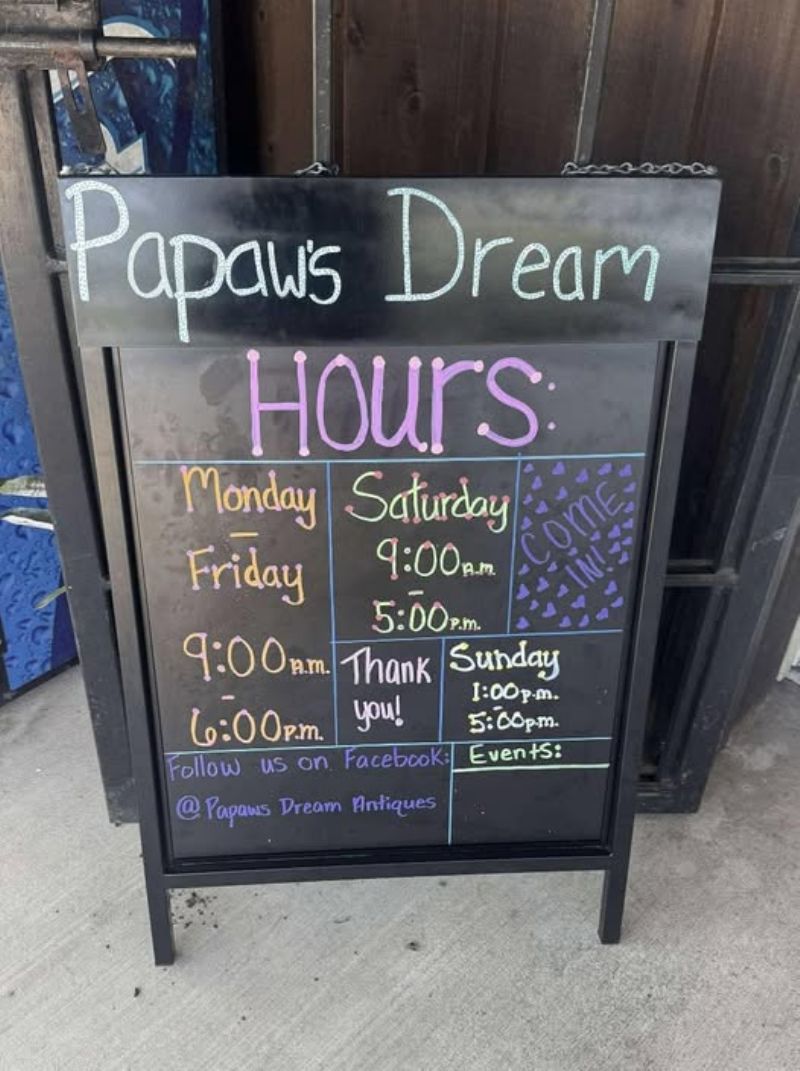 Papaw's Dream
Hours:
Monday
-
Friday
9:00 A.M.
-
6:00 P.M.
Saturday
9:00 A.M.
-
5:00 P.M.
COME
IN!
Thank
you!
Sunday
1:00 p.m.
-
5:00 p.m.
Follow us on Facebook:
@ Papaws Dream Antiques
Events: